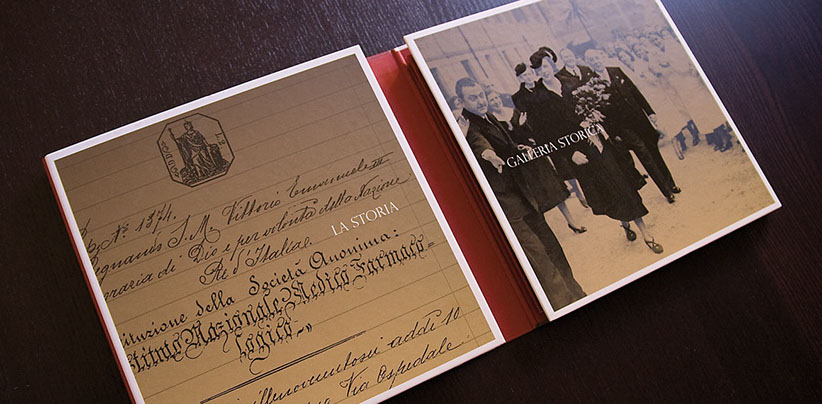 L. 2
N.º 1374.
Regnando S. M. Vittorio Emanuele III
grazia di Dio e per volontà della Nazione
Re d'Italia.
LA STORIA
tituzione della Società Anonima:
stituto Nazionale Medico Farmaco-
logico-»
millenoventosei addì 10
Via Ospedale
GALLERIA STORICA